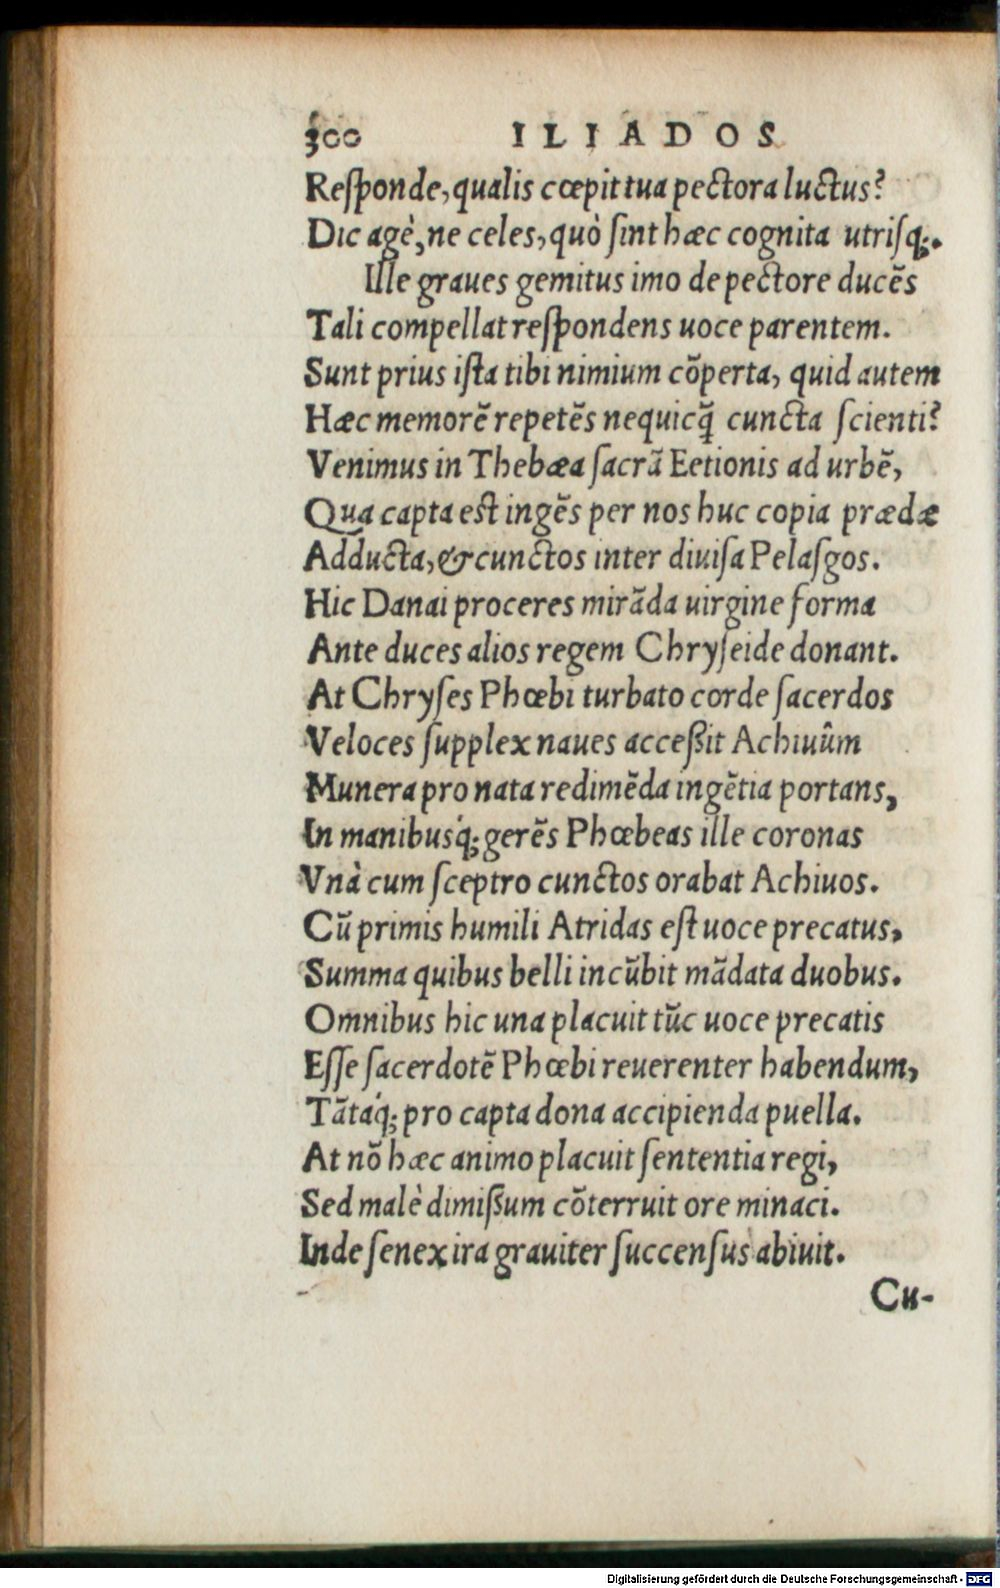 300 ILIADOS
Reſponde, qualis cœpit tua pectora luctus?
Dic agè, ne celes, quò ſint hæc cognita utriſq;.
Ille graues gemitus imo de pectore ducẽs
Tali compellat reſpondens uoce parentem.
Sunt prius iſta tibi nimium cõperta, quid autem
Hæc memorẽ repetẽs nequicq̃ cuncta ſcienti?
Venimus in Thebæa ſacrã Eetionis ad urbẽ,
Qua capta est ingẽs per nos huc copia prædæ
Adducta, & cunctos inter diuiſa Pelaſgos.
Hic Danai proceres mirãda uirgine forma
Ante duces alios regem Chryſeide donant.
At Chryſes Phœbi turbato corde ſacerdos
Veloces ſupplex naues acceßit Achiuûm
Munera pro nata redimẽda ingẽtia portans,
In manibusq́; gerẽs Phœbeas ille coronas
Vnà cum ſceptro cunctos orabat Achiuos.
Cũ primis humili Atridas eſt uoce precatus,
Summa quibus belli incũbit mãdata duobus.
Omnibus hic una placuit tũc uoce precatis
Eſſe ſacerdotẽ Phœbi reuerenter habendum,
Tãtaq́; pro capta dona accipienda puella.
At nõ hæc animo placuit ſententia regi,
Sed malè dimißum cõterruit ore minaci.
Inde ſenex ira grauiter ſuccenſus abiuit.
Cu-
Digitalisierung gefördert durch die Deutsche Forschungsgemeinschaft - DFG